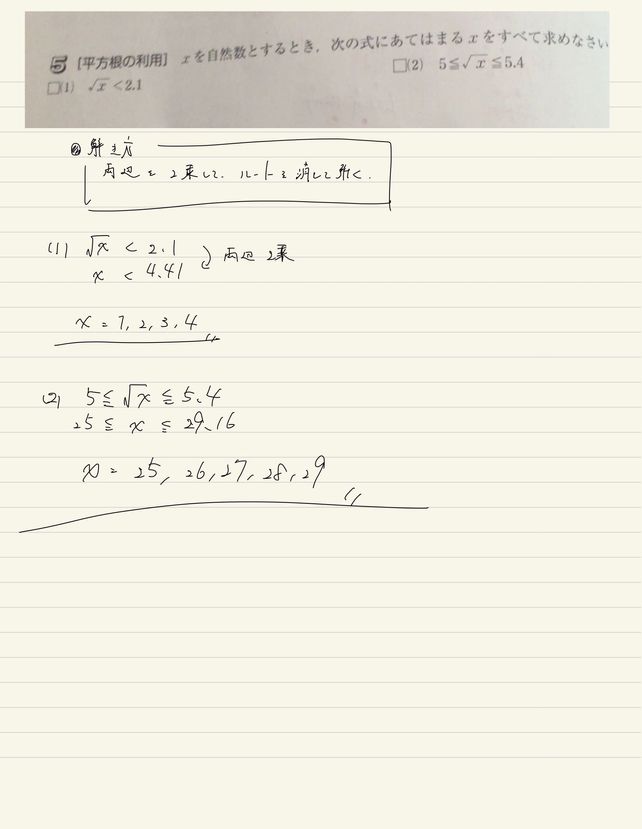 5 [平方根の利用] xを自然数とするとき，次の式にあてはまるxをすべて求めなさい
□(1) √x＜2.1 □(2) 5≦√x≦5.4
解き方
両辺を2乗して、ルートを消して解く.
(1) √x < 2.1
x < 4.41 両辺2乗
x = 1, 2, 3, 4
(2) 5 ≦ √x ≦ 5.4
25 ≦ x ≦ 29.16
x = 25, 26, 27, 28, 29